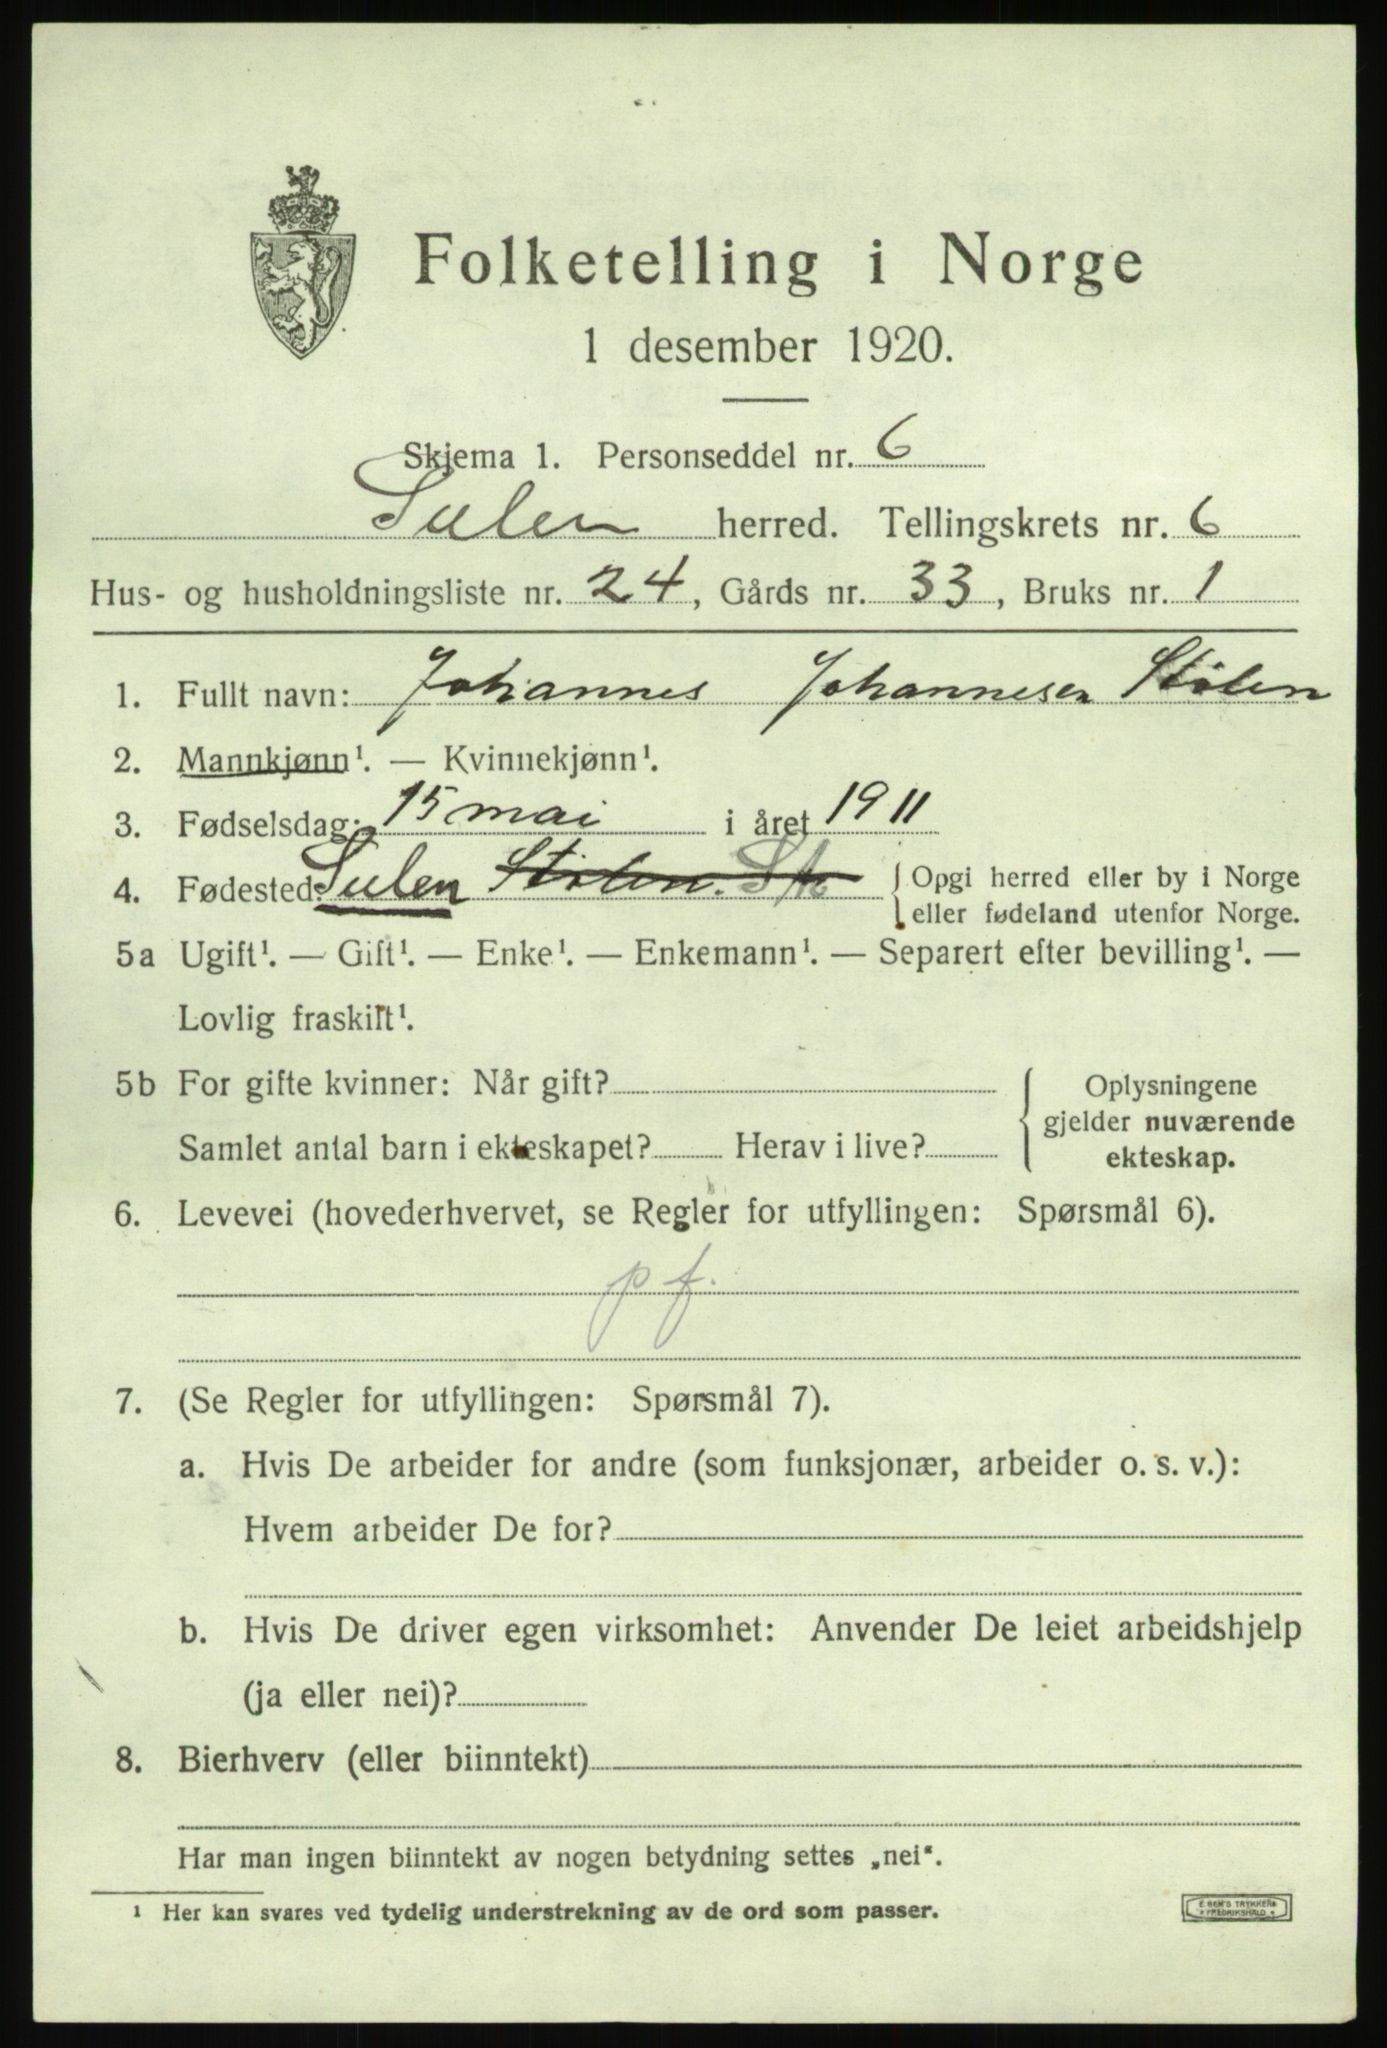 Folketelling i Norge
1 desember 1920.
Skjema 1. Personseddel nr. 6
Sulen herred. Tellingskrets nr. 6
Hus- og husholdningsliste nr. 24, Gårds nr. 33, Bruks nr. 1
1. Fullt navn: Johannes Johannesen Stølen
2. Mannkjønn¹. — Kvinnekjønn¹.
3. Fødselsdag: 15 mai i året 1911
4. Fødested: Sulen Stølen. { Opgi herred eller by i Norge
eller fødeland utenfor Norge.
5a Ugift¹. — Gift¹. — Enke¹. — Enkemann¹. — Separert efter bevilling¹. —
Lovlig fraskilt¹.
5b For gifte kvinner: Når gift? { Oplysningene
gjelder nuværende
Samlet antal barn i ekteskapet? Herav i live? ekteskap.
6. Levevei (hovederhvervet, se Regler for utfyllingen: Spørsmål 6).
p f.
7. (Se Regler for utfyllingen: Spørsmål 7).
a. Hvis De arbeider for andre (som funksjonær, arbeider o. s. v.):
Hvem arbeider De for?
b. Hvis De driver egen virksomhet: Anvender De leiet arbeidshjelp
(ja eller nei)?
8. Bierhverv (eller biinntekt)
Har man ingen biinntekt av nogen betydning settes „nei“.
¹ Her kan svares ved tydelig understrekning av de ord som passer.